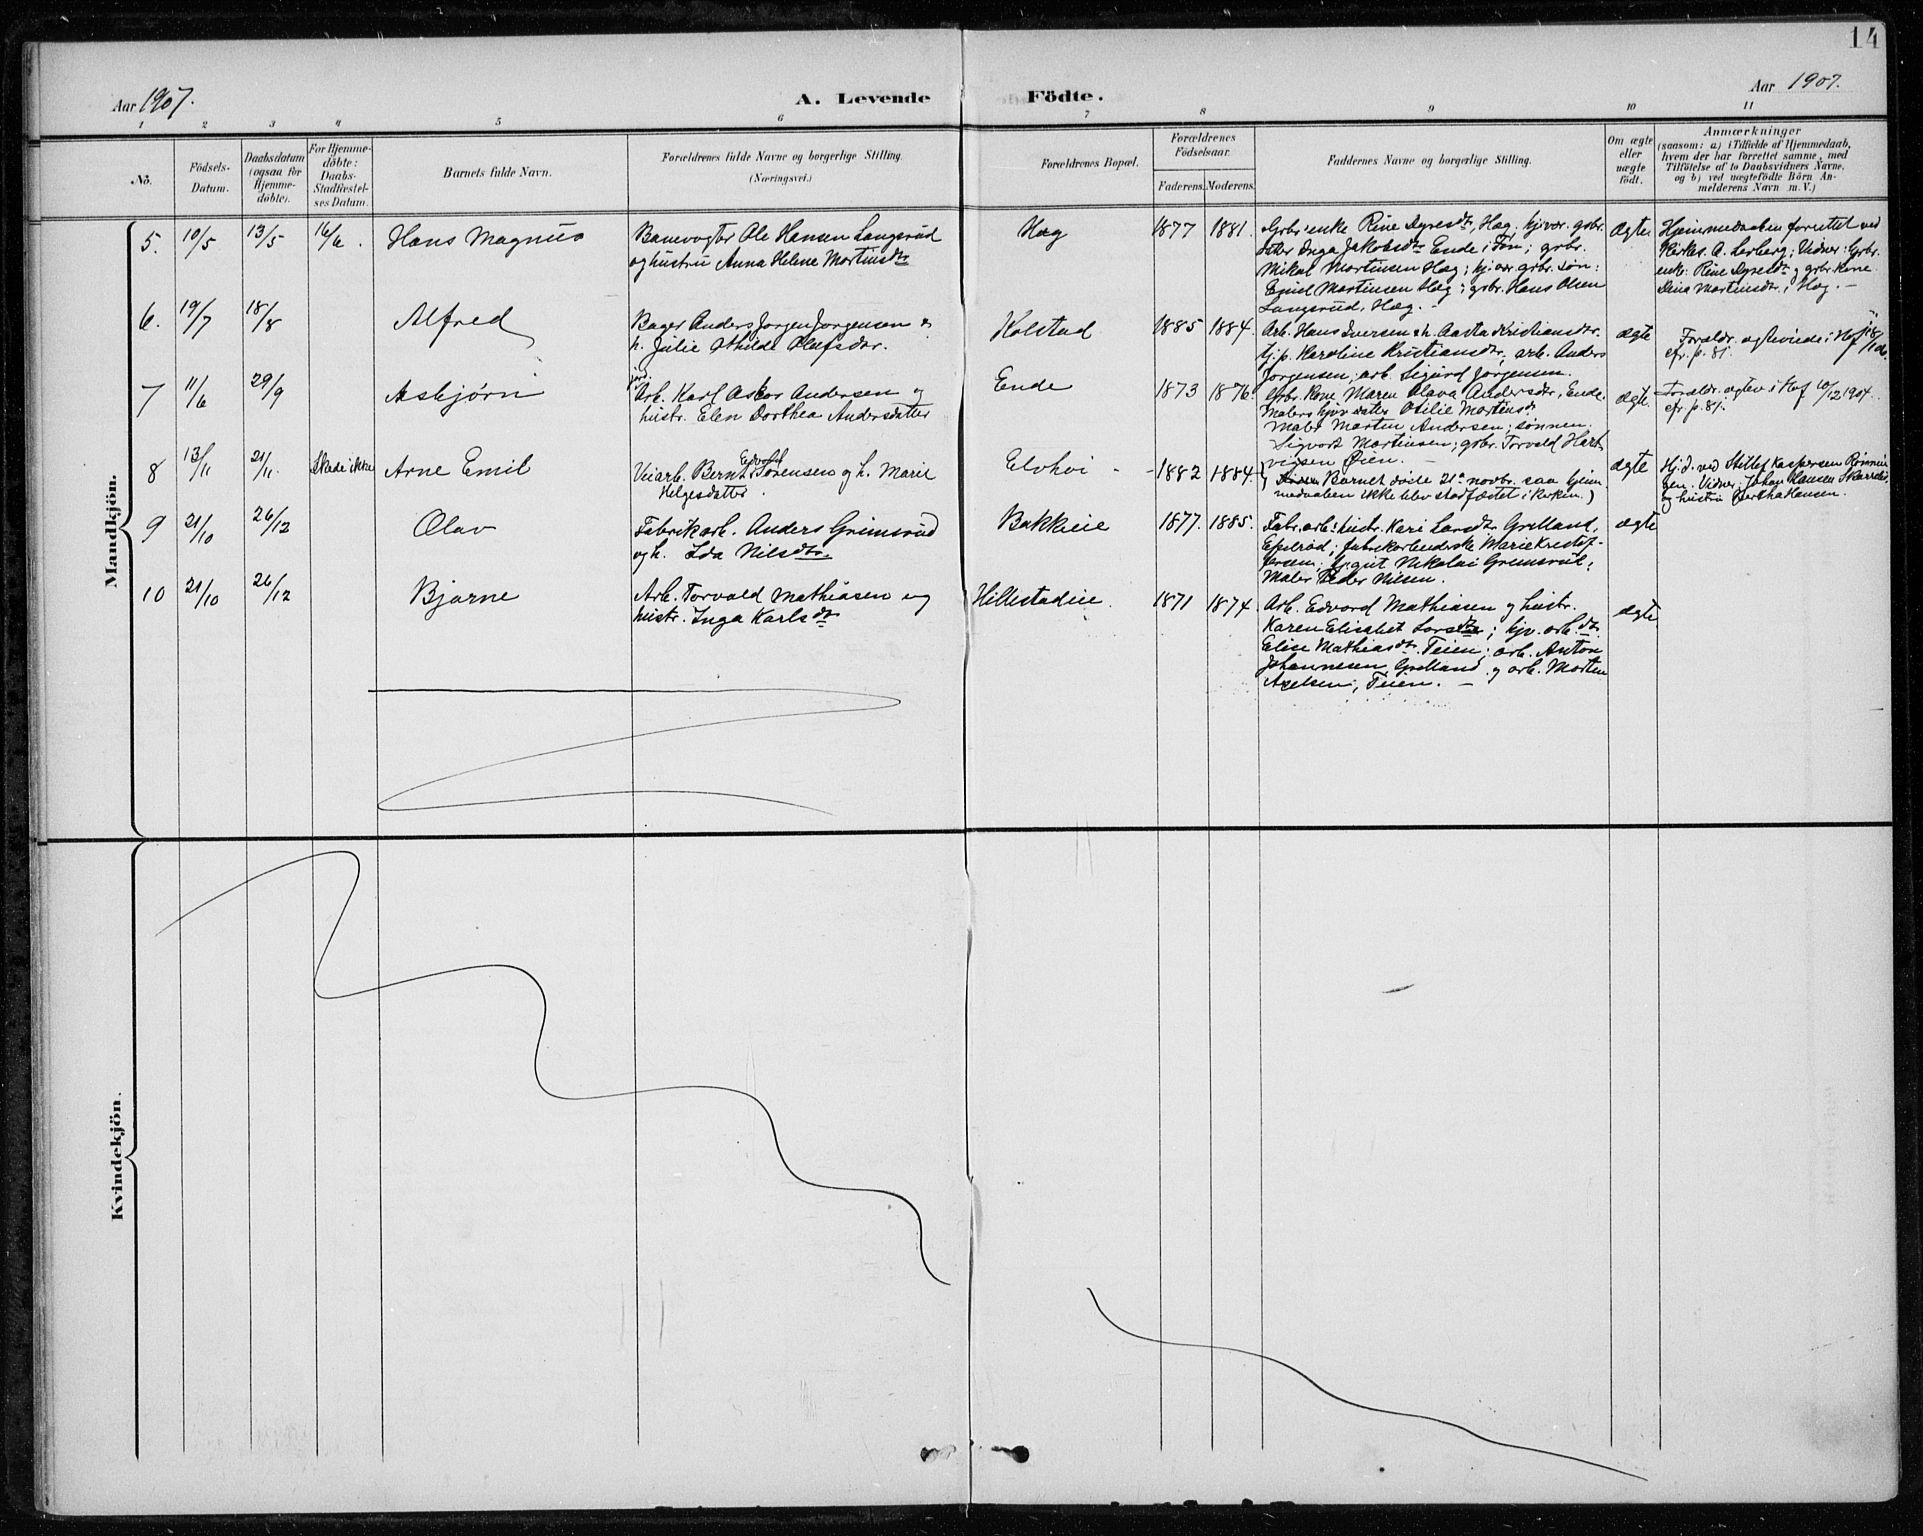 14
Aar 1907.
A. Levende Födte.
Aar 1907.
1 2 3 4 5 6 7 8 9 10 11
No.
Födsels-
Datum.
Daabsdatum
(ogsaa for
Hjemme-
döbte).
For Hjemme-
döbte:
Daabs-
Stadfæstel-
ses Datum.
Barnets fulde Navn.
Forældrenes fulde Navne og borgerlige Stilling.
(Næringsvei.)
Forældrenes Bopæl.
Forældrenes
Födselsaar.
Faderens. Moderens.
Faddernes Navne og borgerlige Stilling.
Om ægte
eller
uægte
födt.
Anmærkninger
(saasom: a) i Tilfælde af Hjemmedaab,
hvem der har forrettet samme, med
Tilföielse af to Daabsvidners Navne,
og b) ved uægtefödte Börn An-
melderens Navn m. V.)
Mandkjön.
5. 10/5 13/5 16/6. Hans Magnus
Banevogter Ole Hansen Langsrud
og hustru Anna Helene Mortinsdtr
Hæg
1877 1881.
Grbr enke Rine Dyresdt, Hæg; kjvor. grbr.
datter Inga Jakobsdtr Ende i Fon; grbr.
Mikal Mortinsen Hæg; kjøvr. grbr. søn:
Emil Mortinsen Hæg; grbr. Hans Olsen
Langsrud, Hæg. —
Ægte.
Hjemmedaaben forrettet ved
Kirkes. A. Lerberg; Vidner: Grbr.
enke: Rine Dyresdt og grbr kone
Dina Mortinsdtr, Hæg. —
6. 19/7 18/8 Alfred
Bager Anders Jorgen Jorgensen &
h. Julie Othilde Olafsdtr.
Kolstad
1885 1884.
Arb. Hans Iversen & h. Aasta Kristiansdtr.
tj.p. Karoline Kristiansdtr, arb. Anders
Jorgensen; arb. Sigurd Jorgensen.
ægte
Foraldr. agteviede i Hof
cfr. p. 81.
7 11/6 29/9 Asbjørn
Arb. Karl Oskar Andersen og
hustr. Elen Dorthea Andersdatter
Ende
1873 1876.
Grbr. kone Maren Olava Andersdtr, Ende.
Malers hjvdatter Otilie Mortinsdt
Maler Morten Andersen; sønnen
Sigvart Mortinsen; grbr. Torvald Hart-
vigsen Øien. —
ægte.
Foraldr. agtev i Hof 10/12 1904.
cfr. p. 81.
8 13/11 21/11. Skede ikke Arne Emil
Edvard
Veiarb. Bernt Sørensen og h. Marie
Helgesdatter.
Elvhøi -
1882 1884.
Barnet døde 21de novbr. saa hjem-
medaaben ikke blev stadfæstet i kirken.)
ægte
Hj.d. ved Stillef Kaspersen Rønnin
gen. Vidner: Johan Hansen
og hustru Bertha Hansen.
9 21/10 26/12 Olav
Fabrikarb. Anders Grimsrud
og h. Ida Nilsdtr.
Bakkeie
1877. 1885.
Fabr.arb: hustr. Kari Larsdtr Grelland,
fabrikarbeiderske Marie Kristof-
fersen; Nikolai Grimsrud;
Maler Peder Nilsen.
ægte
10 21/10 26/12 Bjarne
Arb. Torvald Mathiasen og
hustr. Inga Karlsdtr
Hillestadeie.
1871 1874.
Arb. Edvard Mathiasen og hustr.
Karen Elisabet Larsdtr; hjv. arb.dt.
Elise Mathiasdtr Teien; arb. Anton
Johannesen Grelland og arb. Morten
Axelsen, Teien. —
ægte
Kvindekjön.